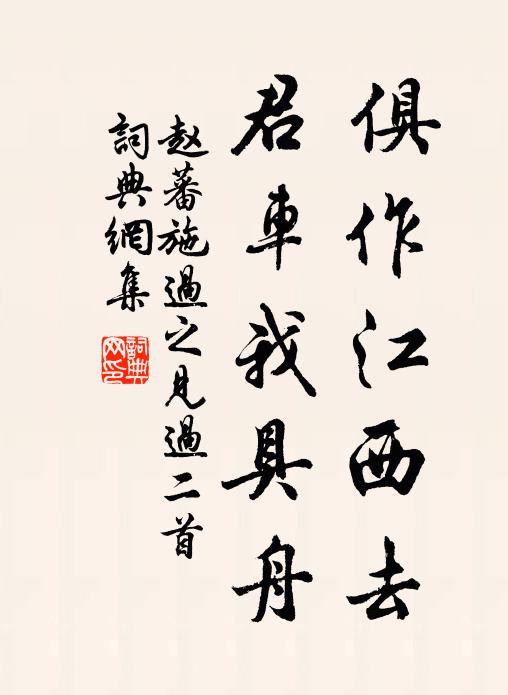 俱作江西去
君車我具舟
赵蕃施過之見過二首
詞典網集
詞典網印